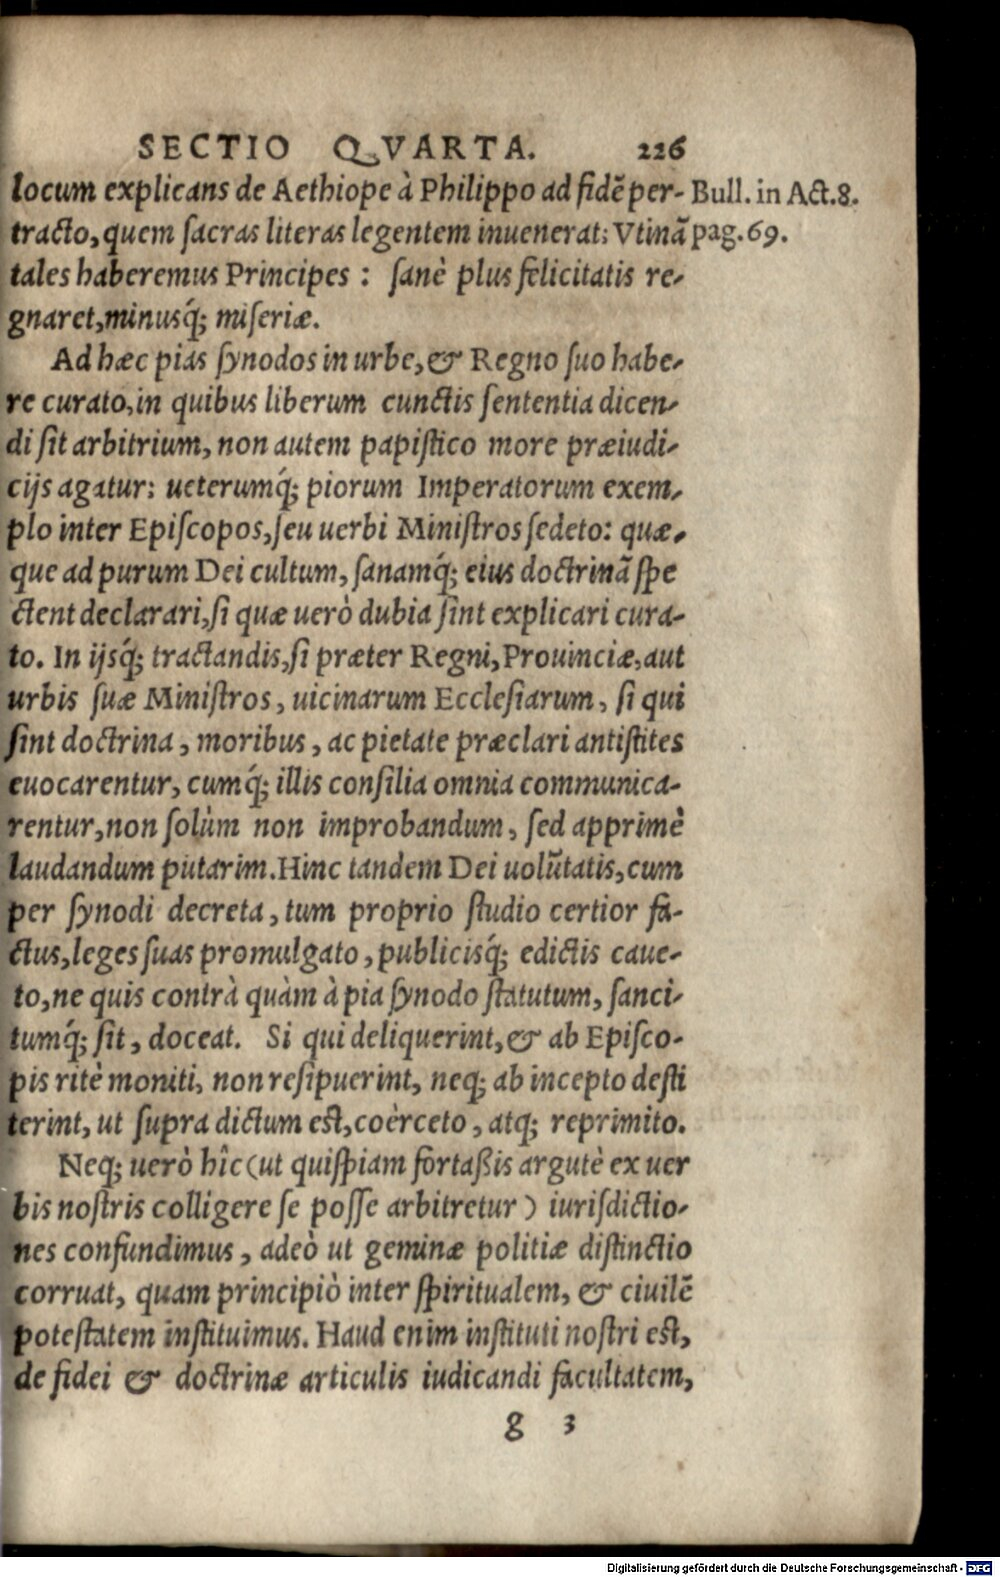 SECTIO QVARTA. 226
locum explicans de Aethiope à Philippo ad fidē per- Bull. in Act.8.
tracto, quem ſacras literas legentem inuenerat: Vtinā pag.69.
tales haberemus Principes : ſanè plus felicitatis re-
gnaret, minusq́; miſeriæ.
Ad hæc pias ſynodos in urbe, & Regno ſuo habe-
re curato, in quibus liberum cunctis ſententia dicen-
di ſit arbitrium, non autem papiſtico more præiudi-
cijs agatur: ueterumq́; piorum Imperatorum exem-
plo inter Epiſcopos, ſeu uerbi Miniſtros ſedeto: quæ-
que ad purum Dei cultum, ſanamq́; eius doctrinā ſpe
ctent declarari, ſi quæ uerò dubia ſint explicari cura-
to. In ijsq́; tractandis, ſi præter Regni, Prouinciæ, aut
urbis ſuæ Miniſtros, uicinarum Eccleſiarum, ſi qui
ſint doctrina, moribus, ac pietate præclari antiſtites
euocarentur, cumq́; illis conſilia omnia communica-
rentur, non ſolùm non improbandum, ſed apprimè
laudandum putarim. Hinc tandem Dei uolūtatis, cum
per ſynodi decreta, tum proprio ſtudio certior fa-
ctus, leges ſuas promulgato, publicisq́; edictis caue-
to, ne quis contrà quàm à pia ſynodo ſtatutum, ſanci-
tumq́; ſit, doceat. Si qui deliquerint, & ab Epiſco-
pis ritè moniti, non reſipuerint, neq; ab incepto deſti
terint, ut ſupra dictum eſt, coèrceto, atq; reprimito.
Neq; uerò hîc (ut quiſpiam fortaßis argutè ex uer
bis noſtris colligere ſe poſſe arbitretur) iuriſdictio-
nes confundimus, adeò ut geminæ politiæ diſtinctio
corruat, quam principiò inter ſpiritualem, & ciuilē
poteſtatem inſtituimus. Haud enim inſtituti noſtri eſt,
de fidei & doctrinæ articulis iudicandi facultatem,
g 3
Digitalisierung gefördert durch die Deutsche Forschungsgemeinschaft - DFG